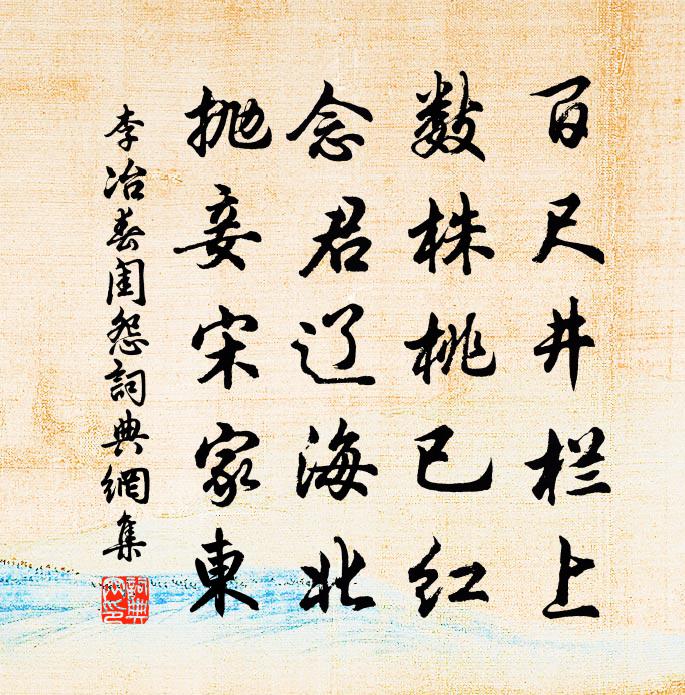 百尺井栏上
数株桃已红
念君辽海北
抛妾宋家東
李冶春闺怨詞典網集